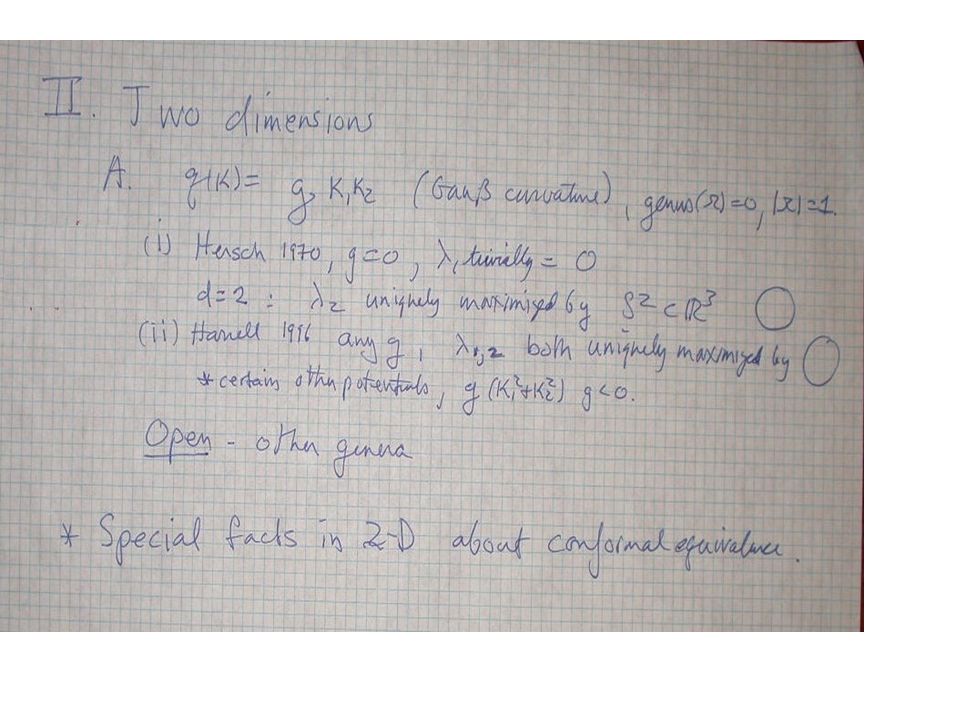 II. Two dimensions
A. q(K) = g K₁K₂ (Gauß curvature), genus(Ω)=0, |Ω|=1.
(i) Hersch 1970, g=0, λ₁ trivially = 0
d=2 : λ₂ uniquely maximized by S² ⊂ ℝ³
(ii) Harrell 1996 any g, λ₁,₂ both uniquely maximized by
* certain other potentials, g (K₁²+K₂²) g<0.
Open - other genera
* Special facts in 2-D about conformal equivalence.